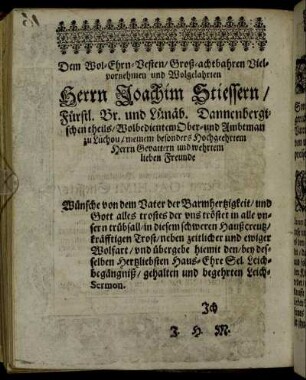 Dem Wol-Ehrn-Vesten/ Groß-achtbahren Viel-
vornehmen und Wolgelahrten
Herrn Joachim Stiessern/
Fürstl. Br. und Lünäb. Dannenbergi-
schen theils/ Wolbedientem Ober-und Ambtman
zu Lüchou/ meinem besonders Hochgeehrtem
Herrn Gevattern und wehrtem
lieben Freunde
Wünsche von dem Vater der Barmhertzigkeit/ und
Gott alles trostes der uns tröstet in alle vn-
sern trübsall/ in diesem schweren Hauß creutz/
kräfftigen Trost/ neben zeitlicher und ewiger
Wolfart/ vnd übergebe hiemit der/ bey des-
selben Hertzliebsten Haus-Ehre Sel. Leich-
begängniß/ gehalten und begehrten Leich-
Sermon.
Ich
J. H. M.